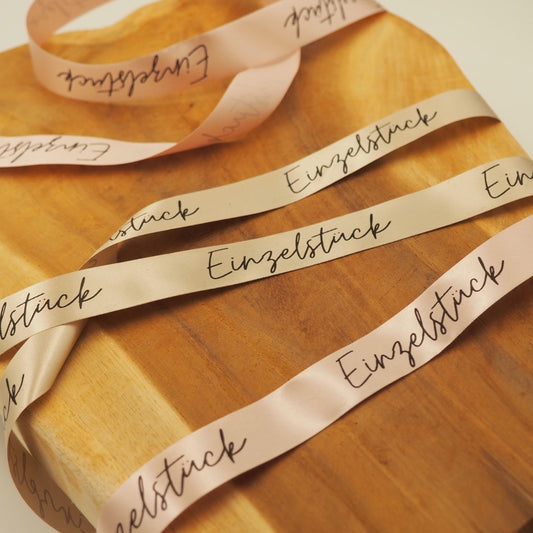 Einzelstück
Einzelstück
Einzelstück
Einzelstück
Einzelstück
Einzelstück
Einzelstück
Einzelstück
Einzelstück
Einzelstück